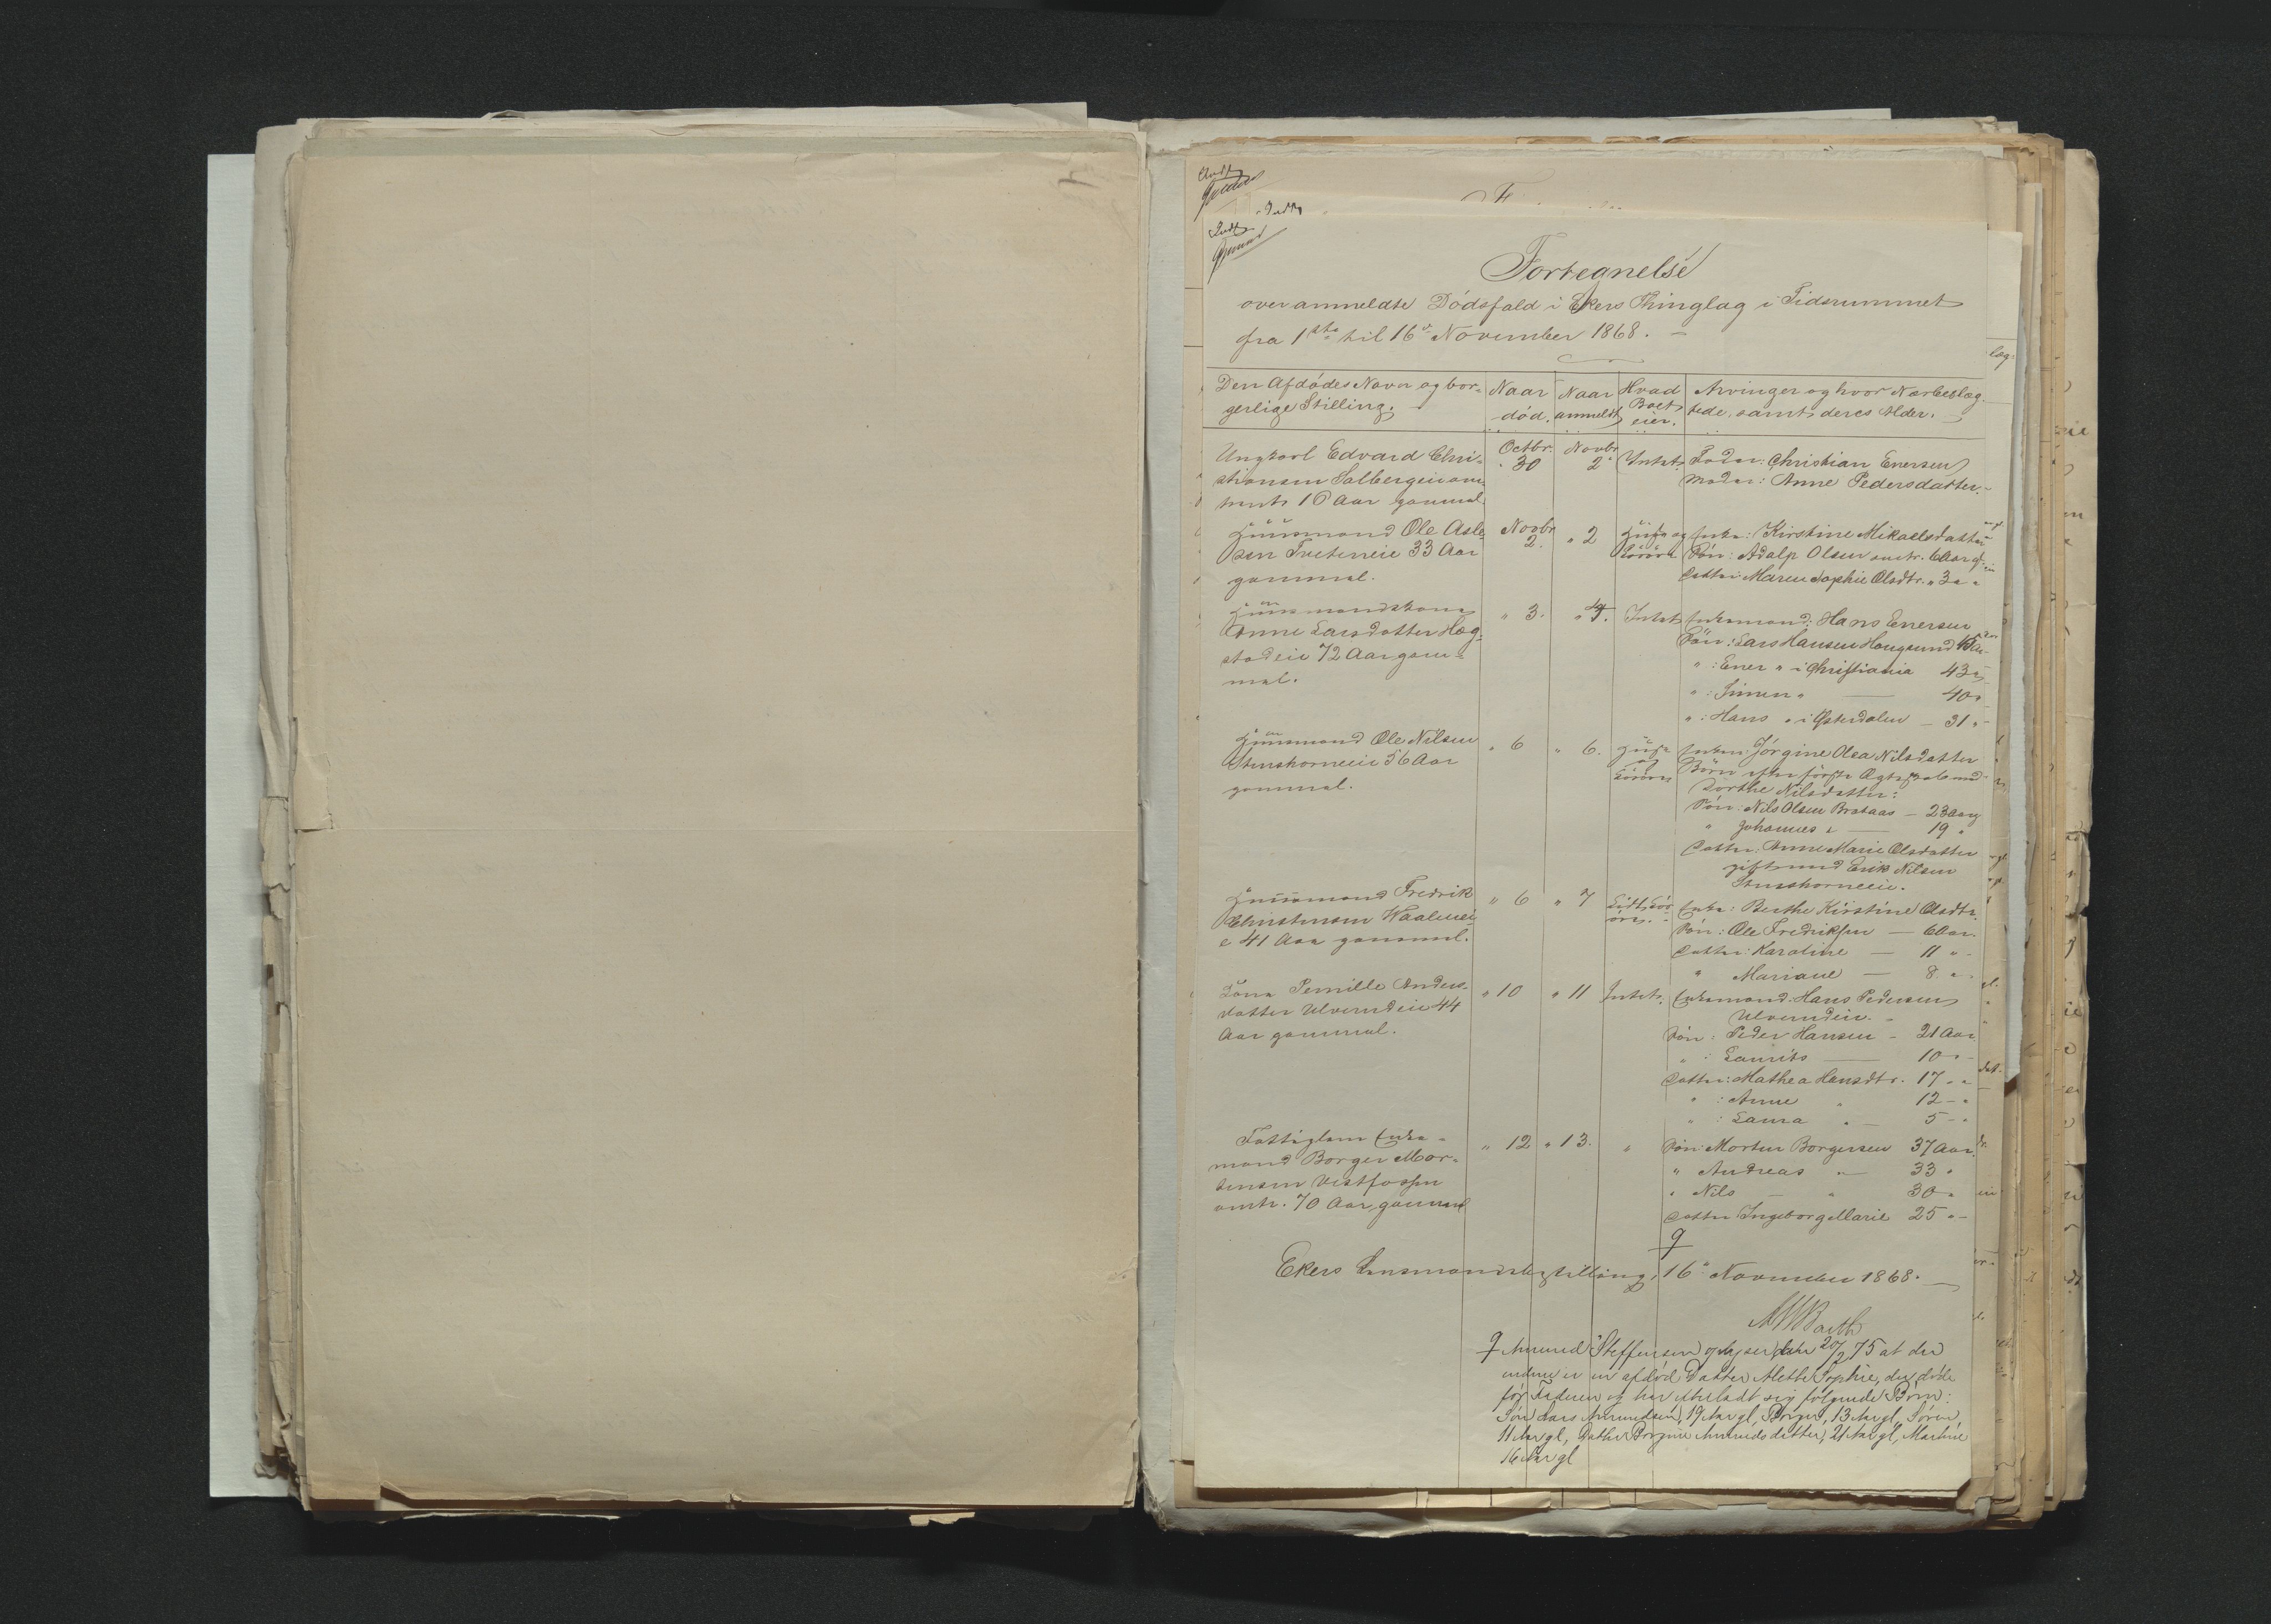 Fortegnelse
over anmeldte Dödsfald i Ekers Thinglag i Tidsrummet
fra 1ste til 16de November 1868.
Den Afdödes Navn og bor-
gerlige Stilling.
Naar
död.
Naar
anmeldt
Hvad
Boet
eier.
Arvinger og hvor Nærbeslæg-
tede, samt deres Alder.
Ungkarl Edvard Chri-
stiansen Solbergeie om-
trent 16 Aar gammel
Octbr. 30
Novbr 2
Intet.
Fader: Christian Enersen
Moder: Anne Pedersdatter.
Huusmand Ole Asle-
sen Tveteneie 33 Aar
gammel.
Novbr 2.
" 2
Huus og
Lösöre
Enke: Kirstine Mikaelsdatter
Sön: Adolp Olsen omtr. 6 Aar gl.
Datter: Maren Sophie Olsdtr. " 3 " "
Huusmandskone
Anne Larsdatter Hæg-
stadeie 72 Aar gam-
mel.
" 3.
" 4.
Intet
Enkemand: Hans Enersen
Sön: Lars Hansen Hougsund 45 Aar
" : Ener " i Christiania 43 "
" : Simen " — 40 "
" : Hans " i Østerdalen — 31 "
Huusmand Ole Nilsen
Stenshorneeie 56 Aar
gammel.
" 6
" 6.
Huus
og
Lösöre
Enke: Jörgine Olea Nilsdatter
Börn efter förste Ægteskab med
Dorthe Nilsdatter:
Sön: Nils Olsen Brataas — 23 Aar
" Johannes " — 19 "
Datter: Anne Marie Olsdatter
gift med Erik Nilsen
Stenshorneeie.
Huusmand Fredrik
Christensen Waalerei-
e 41 Aar gammel.
" 6
" 7
Lidt Lös-
öre.
Enke: Berthe Kirstine Olsdtr.
Sön: Ole Fredriksen — 6 Aar.
Datter: Karoline — 11 "
" Mariane — 8 "
Kone Pernille Anders-
datter Ulverudeie 44
Aar gammel.
" 10
" 11
Intet.
Enkemand: Hans Pedersen
Ulverudeie.
Sön: Peder Hansen - 21 Aar
" : Laurits — 10 "
Datter: Mathea Hansdtr. 17 " "
" : Anne " 12 - "
" : Laura " — 5 - "
Fattiglem Enke-
mand Borger Mor-
tensen Vestfossen
omtr. 70 Aar gammel
" 12
" 13.
"
Sön: Morten Borgersen 37 Aar.
" Andreas " — 33 "
" Nils — " 30 "
Datter Ingeborg Marie 25 " -
Ekers Lensmandsbestilling, 16de November 1868.
Amund Steffensen oplyser 20/2 75 at der
endnu er en afdöd Datter Alette Sophie, der döde
för Faderen og har efterladt sig fölgende Börn:
Sön Lars Amundsen, 19 Aar gl, Borger, 13 Aar gl, Sören,
11 Aar gl, Datter Borgine Amundsdatter, 21 Aar gl, Martine
16 Aar gl